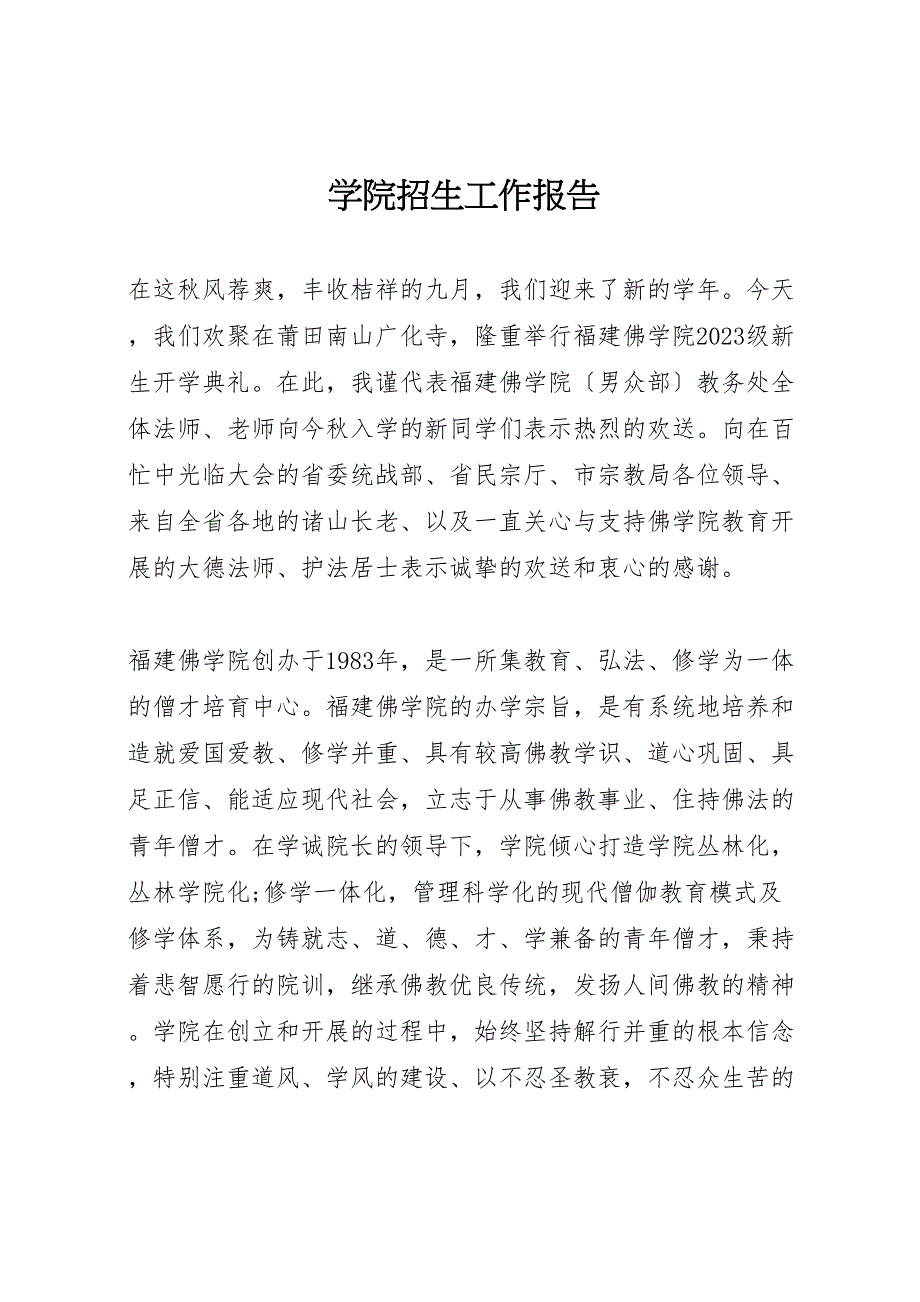 学院招生工作报告
在这秋风荐爽，丰收桔祥的九月，我们迎来了新的学年。今天
，我们欢聚在莆田南山广化寺，隆重举行福建佛学院2023级新
生开学典礼。在此，我谨代表福建佛学院〔男众部〕教务处全
体法师、老师向今秋入学的新同学们表示热烈的欢送。向在百
忙中光临大会的省委统战部、省民宗厅、市宗教局各位领导、
来自全省各地的诸山长老、以及一直关心与支持佛学院教育开
展的大德法师、护法居士表示诚挚的欢送和衷心的感谢。
福建佛学院创办于1983年，是一所集教育、弘法、修学为一体
的僧才培育中心。福建佛学院的办学宗旨，是有系统地培养和
造就爱国爱教、修学并重、具有较高佛教学识、道心巩固、具
足正信、能适应现代社会，立志于从事佛教事业、住持佛法的
青年僧才。在学诚院长的领导下，学院倾心打造学院丛林化，
丛林学院化;修学一体化，管理科学化的现代僧伽教育模式及
修学体系，为铸就志、道、德、才、学兼备的青年僧才，秉持
着悲智愿行的院训，继承佛教优良传统，发扬人间佛教的精神
。学院在创立和开展的过程中，始终坚持解行并重的根本信念
，特别注重道风、学风的建设、以不忍圣教衰，不忍众生苦的